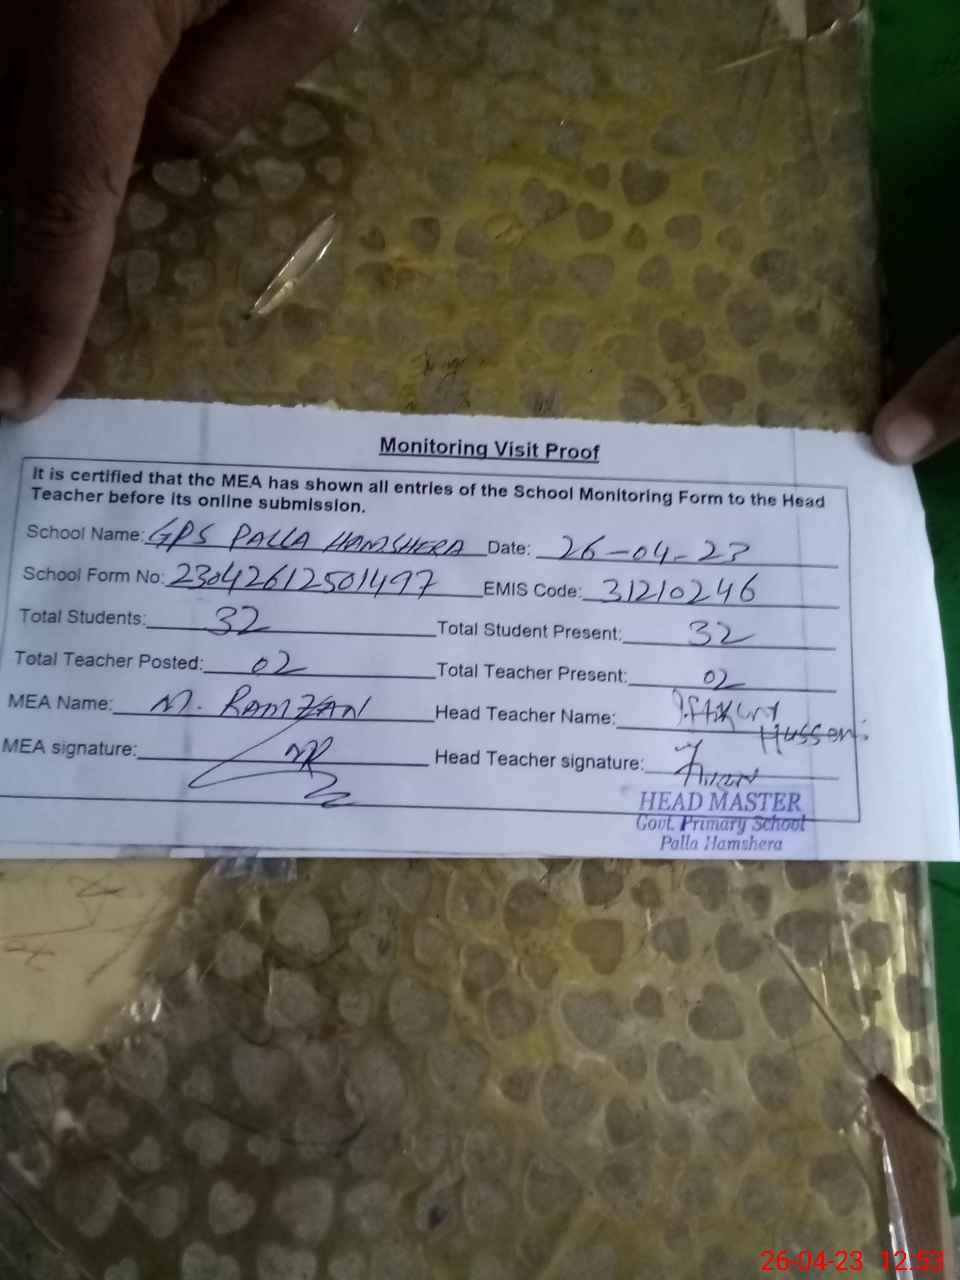 Monitoring Visit Proof
It is certified that the MEA has shown all entries of the School Monitoring Form to the Head
Teacher before its online submission.
School Name: GPS PALLA HAMSHERA Date: 26-04-23
School Form No: 23042612501497 EMIS Code: 31210246
Total Students: 32 Total Student Present: 32
Total Teacher Posted: 02 Total Teacher Present: 02
MEA Name: M. RAMZAN Head Teacher Name:
MEA signature: MR Head Teacher signature:
HEAD MASTER
Govt. Primary School
Palla Hamshera
26-04-23 12:53